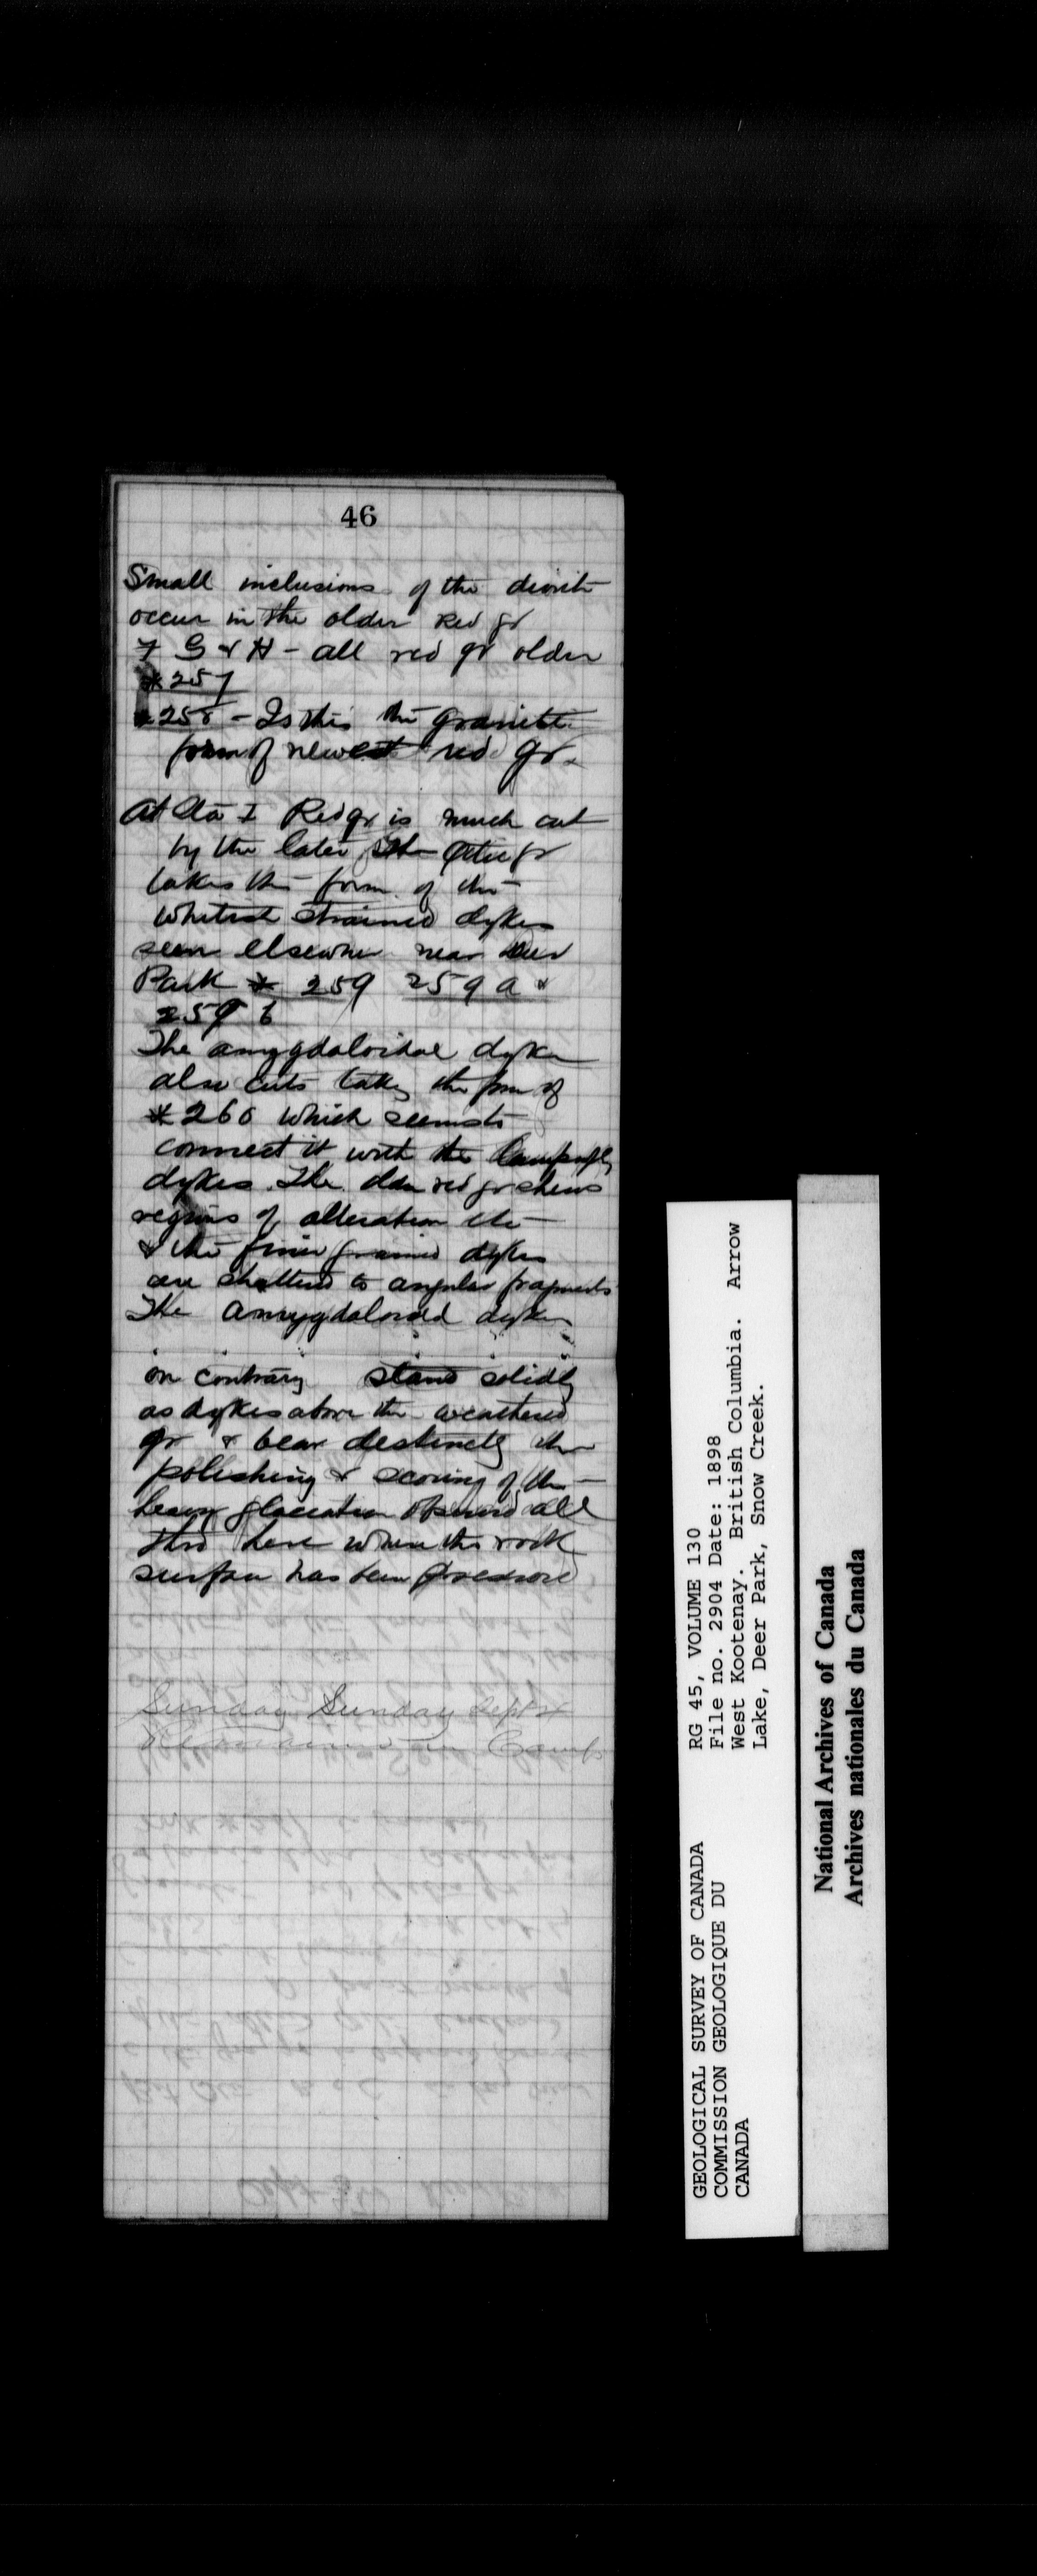 46
Small inclusions of the diorite
occur in the older red gr
F G & H - all red gr older
* 257
* 258 - Is this the granite
form of newest red gr.
At Sta I Red gr is much cut
by the later the
takes the form of the
whitish strained dykes
seen elsewhere near Deer
Park * 259 259 a &
259 b
The amygdaloidal dyke
also cuts takes the form of
* 260 which seems to
connect it with the
dykes. The older red gr shews
regions of alteration etc
& the finer grained dykes
are shattered to angular fragments
The amygdaloidal dykes
on contrary stand solidly
as dykes above the weathered
gr & bear distinctly the
polishing & scoring of the
heavy glaciation observed all
thro here where the rock
surface has been preserved
Sunday Sunday Sept 4
Remained in Camp
RG 45, VOLUME 130
File no. 2904 Date: 1898
West Kootenay. British Columbia. Arrow
Lake, Deer Park, Snow Creek.
GEOLOGICAL SURVEY OF CANADA
COMMISSION GEOLOGIQUE DU
CANADA
National Archives of Canada
Archives nationales du Canada